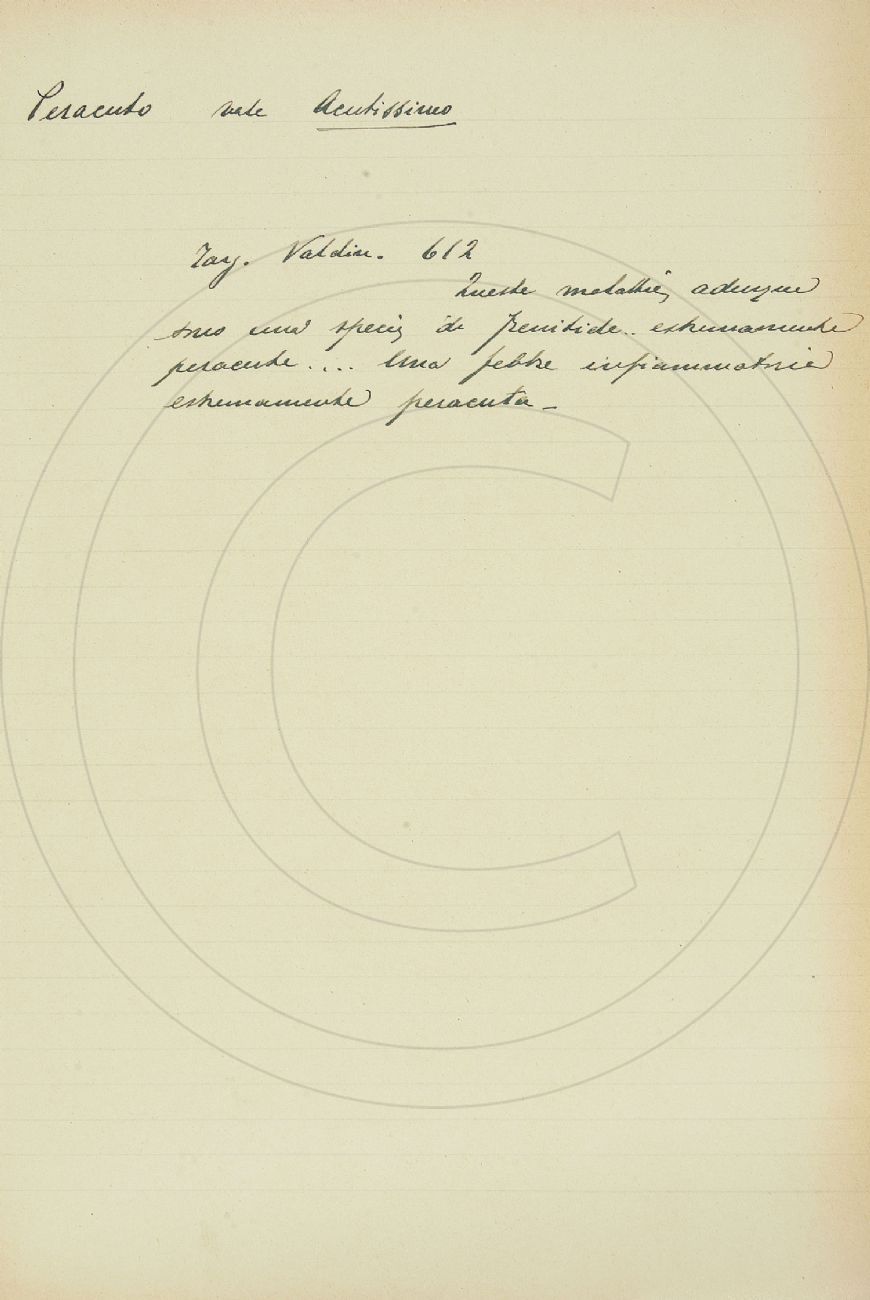 Peracuto vale Acutissimo
Targ. Valdin. 612
Queste malattie, adunque
sono una specie di frenitide.. estremamente
peracute.... Una febbre infiammatoria
estremamente peracuta_